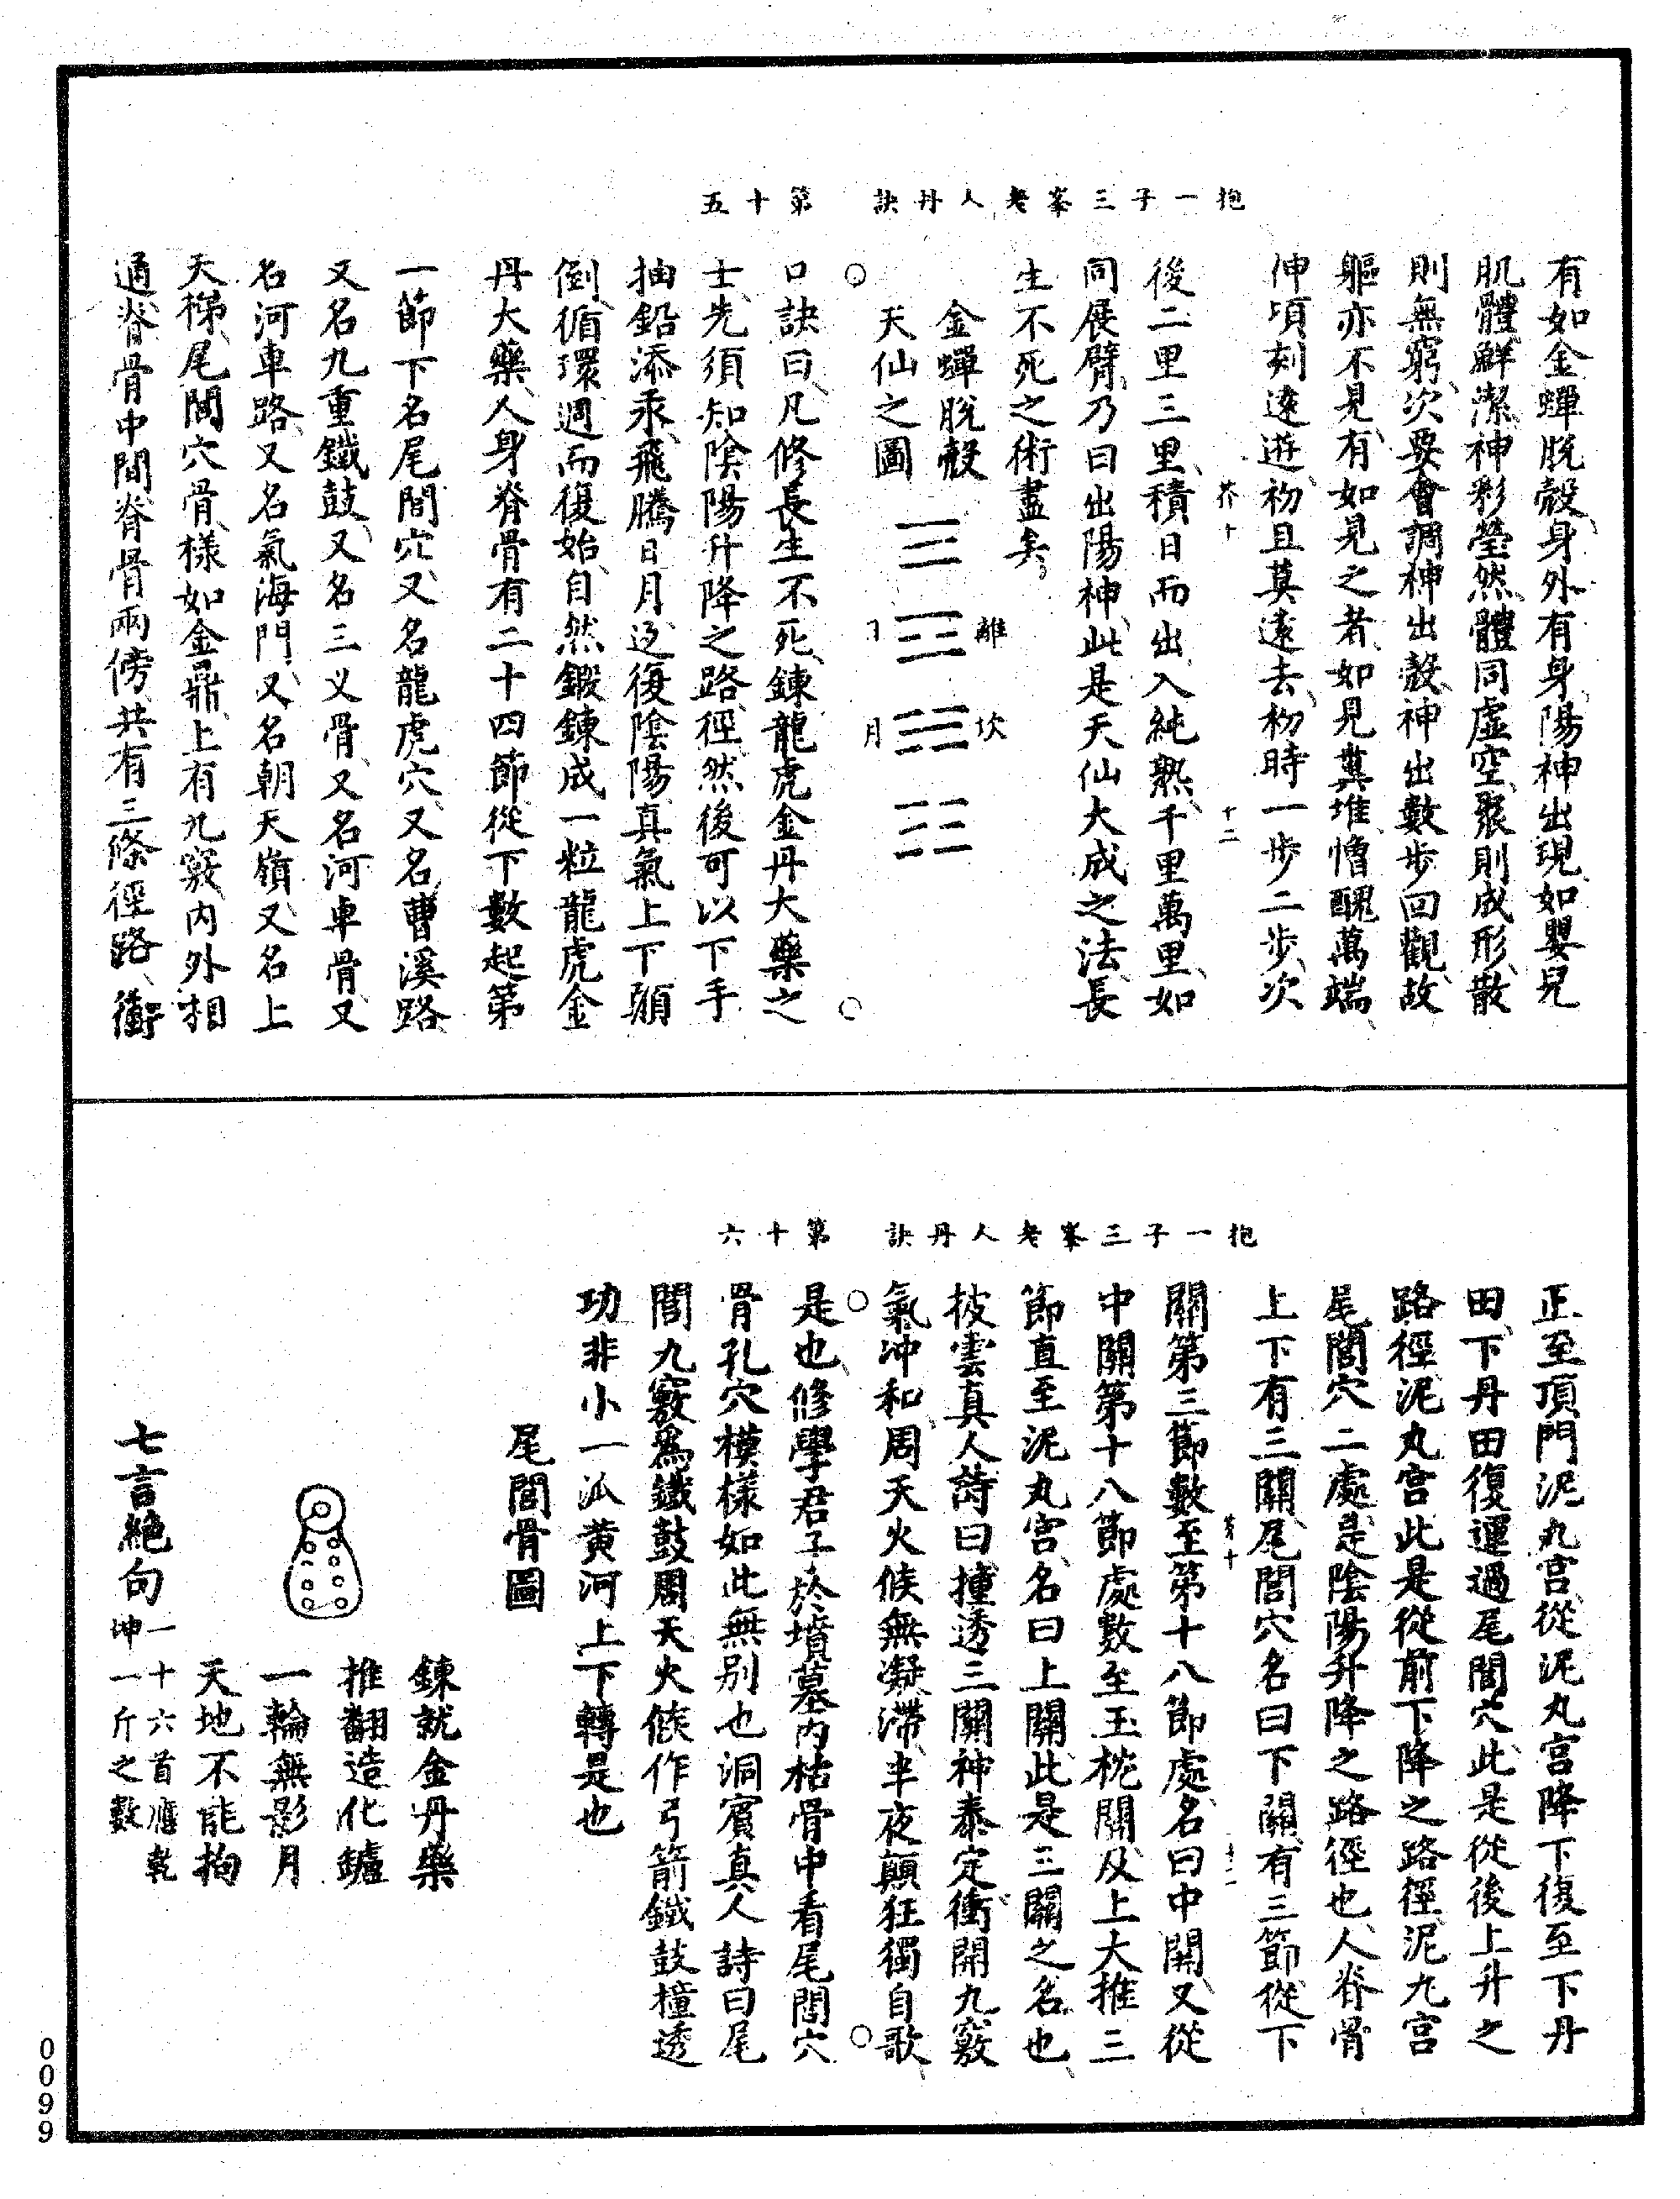 抱一子三峯老人丹訣　第十五
有如金蟬脫殼身外有身陽神出現如嬰兒
肌體鮮潔神彩瑩然體同虛空聚則成形散
則無窮次要會調神出殼神出數步回觀故
軀亦不見有如見之者如見糞堆憎醜萬端
伸頃刻遠遊初且莫遠去初時一步二步次
芥十　十二
後二里三里積日而出入純熟千里萬里如
同展臂乃曰出陽神此是天仙大成之法長
生不死之術盡矣
金蟬脫殼
天仙之圖
離　坎
月
口訣曰凡修長生不死鍊龍虎金丹大藥之
士先須知陰陽升降之路徑然後可以下手
抽鉛添汞飛騰日月返復陰陽真氣上下顛
倒循環週而復始自然鍛鍊成一粒龍虎金
丹大藥人身脊骨有二十四節從下數起第
一節下名尾閭穴又名龍虎穴又名曹溪路
又名九重鐵鼓又名三义骨又名河車骨又
名河車路又名氣海門又名朝天嶺又名上
天梯尾閭穴骨樣如金鼎上有九竅內外相
通脊骨中間脊骨兩傍共有三條徑路衝
抱一子三峯老人丹訣　第十六
正至頂門泥丸宮從泥丸宮降下復至下丹
田下丹田復運過尾閭穴此是從後上升之
路徑泥丸宮此是從前下降之路徑泥丸宮
尾閭穴二處是陰陽升降之路徑也人脊骨
上下有三關尾閭穴名曰下關有三節從下
芥十　十二
關第三節數至第十八節處名曰中關又從
中關第十八節處數至玉枕關及上大推三
節直至泥丸宮名曰上關此是三關之名也
披雲真人詩曰撞透三關神泰定衝開九竅
氣沖和周天火候無凝滯半夜顛狂獨自歌
是也修學君子於墳墓內枯骨中看尾閭穴
骨孔穴模樣如此無別也洞賓真人詩曰尾
閭九竅為鐵鼓周天火候作弓箭鐵鼓撞透
功非小一派黃河上下轉是也
尾閭骨圖
鍊就金丹藥
推翻造化鑪
一輪無影月
天地不能拘
七言絕句一十六首應乾坤一斤之數
0099